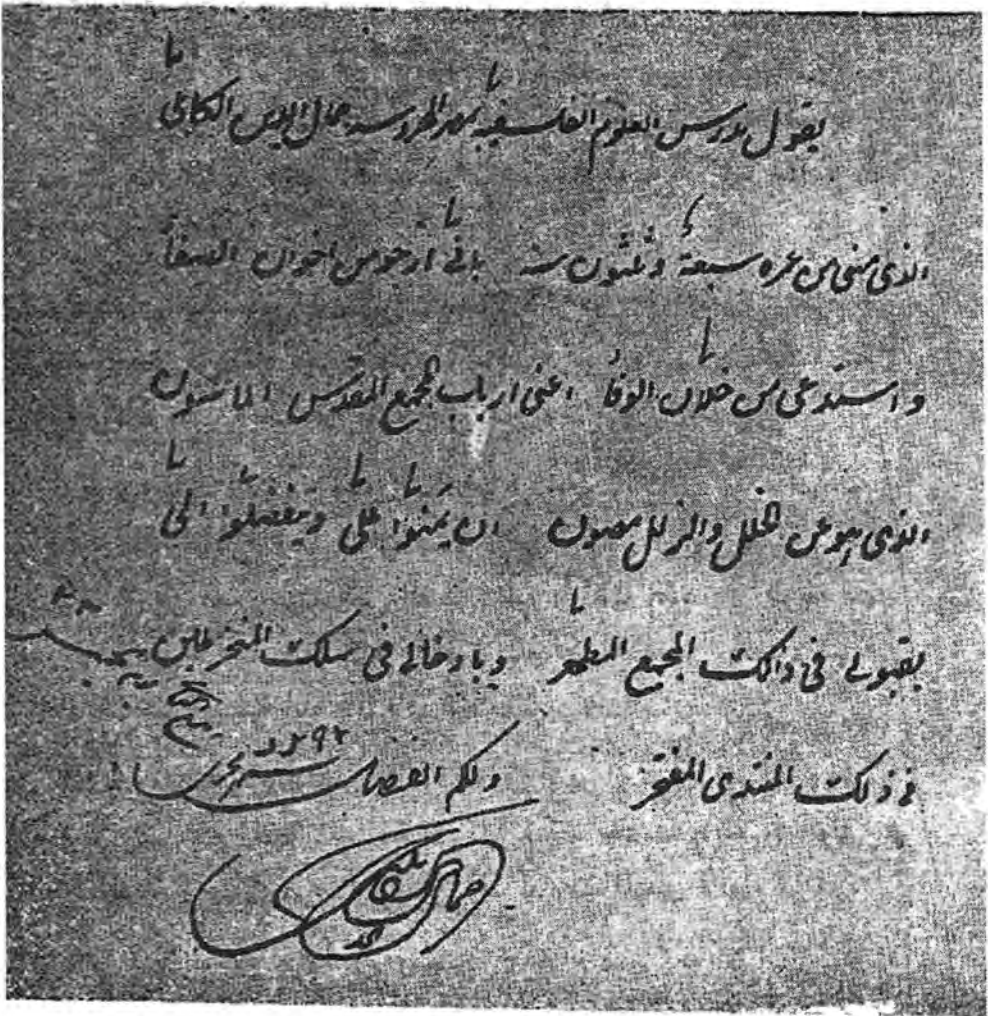 يقول مدرس العلوم الفلسفية بمصر المحروسة جمال الدين الكابلى
الذى مضى من عمره سبعة وثلثون سنة بانى ارجو من اخوان الصفاء
واستدعى من خلان الوفاء اعنى ارباب المجمع المقدس الماسون
الذى هو عن الخلل والزلل مصون ان يمنوا على ويتفضلوا الى
بقبولى فى ذالك المجمع المطهر وبادخالى فى سلك المنخرطين
فى ذلك المنتدى المفتخر ولكم الفضل
جمال الدين